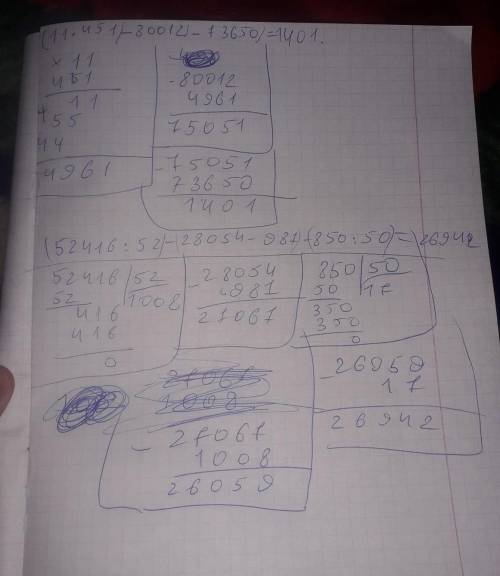 (11·451)-80012)-73650)=1401.
×11
451
11
+55
44
4961
-80012
4961
75051
-75051
73650
1401
(52416:52)-(28054-987)-(850:50)=26942
52416|52
52 1008
416
416
0
-28054
987
27067
850|50
50 17
350
350
0
-27067
1008
26059
-26059
17
26942